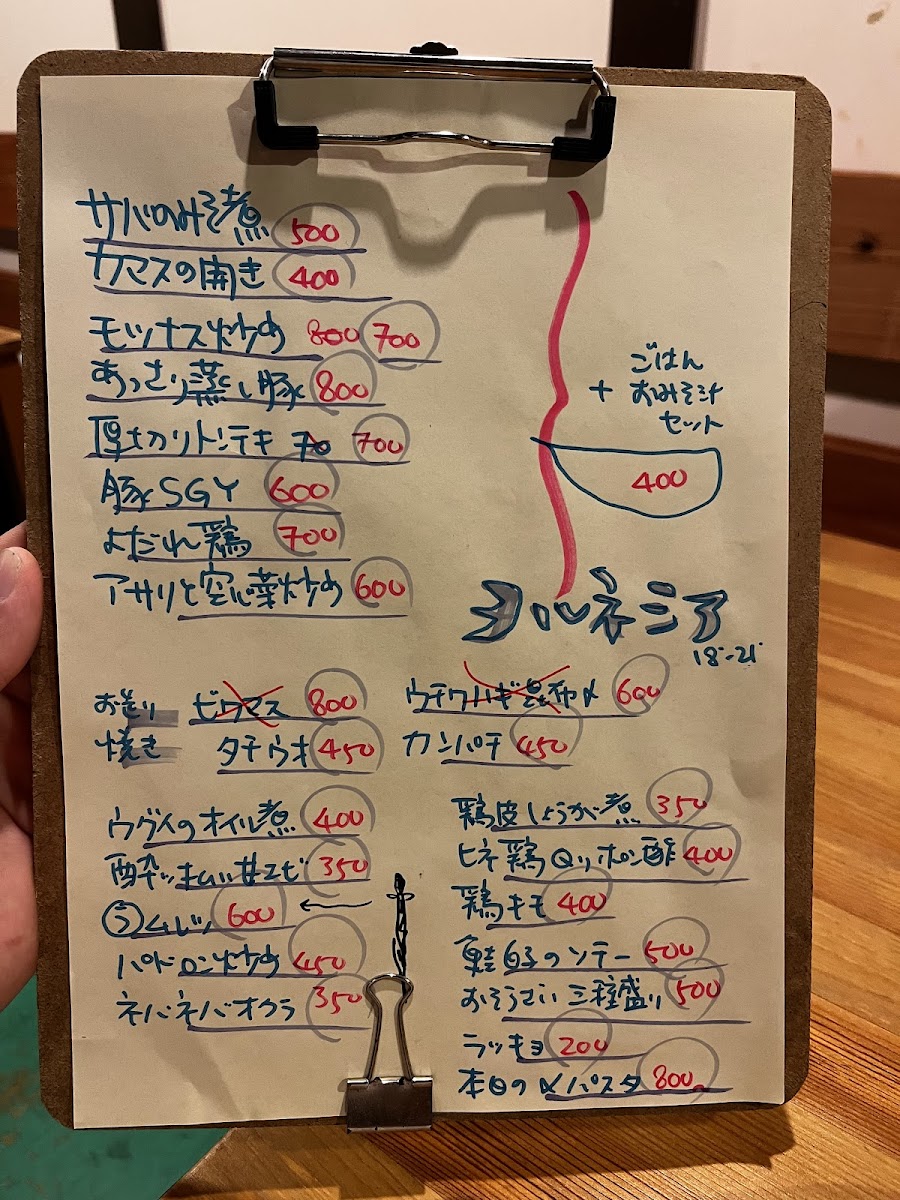 サバのみそ煮 500
カマスの開き 400
モツナス炒め 800 700
あっさり蒸し豚 800
厚切りトンテキ 70 700
豚SGY 600
よだれ鶏 700
アサリと空心菜炒め 600
+ ごはん
おみそ汁
セット
400
ヨルネシア
18-21
おつくり ビワマス 800
焼き タチウオ 450
ウチワハギ昆布〆 600
カンパチ 450
ウグイのオイル煮 400
酔ッ払い甘エビ 350
うムレツ 600
パドロン炒め 450
ネバネバオクラ 350
鶏皮しょうが煮 350
ヒネ鶏Qリポン酢 400
鶏キモ 400
鮭白子のソテー 500
おそうざい三種盛り 500
ラッキョ 200
本日の〆パスタ 800